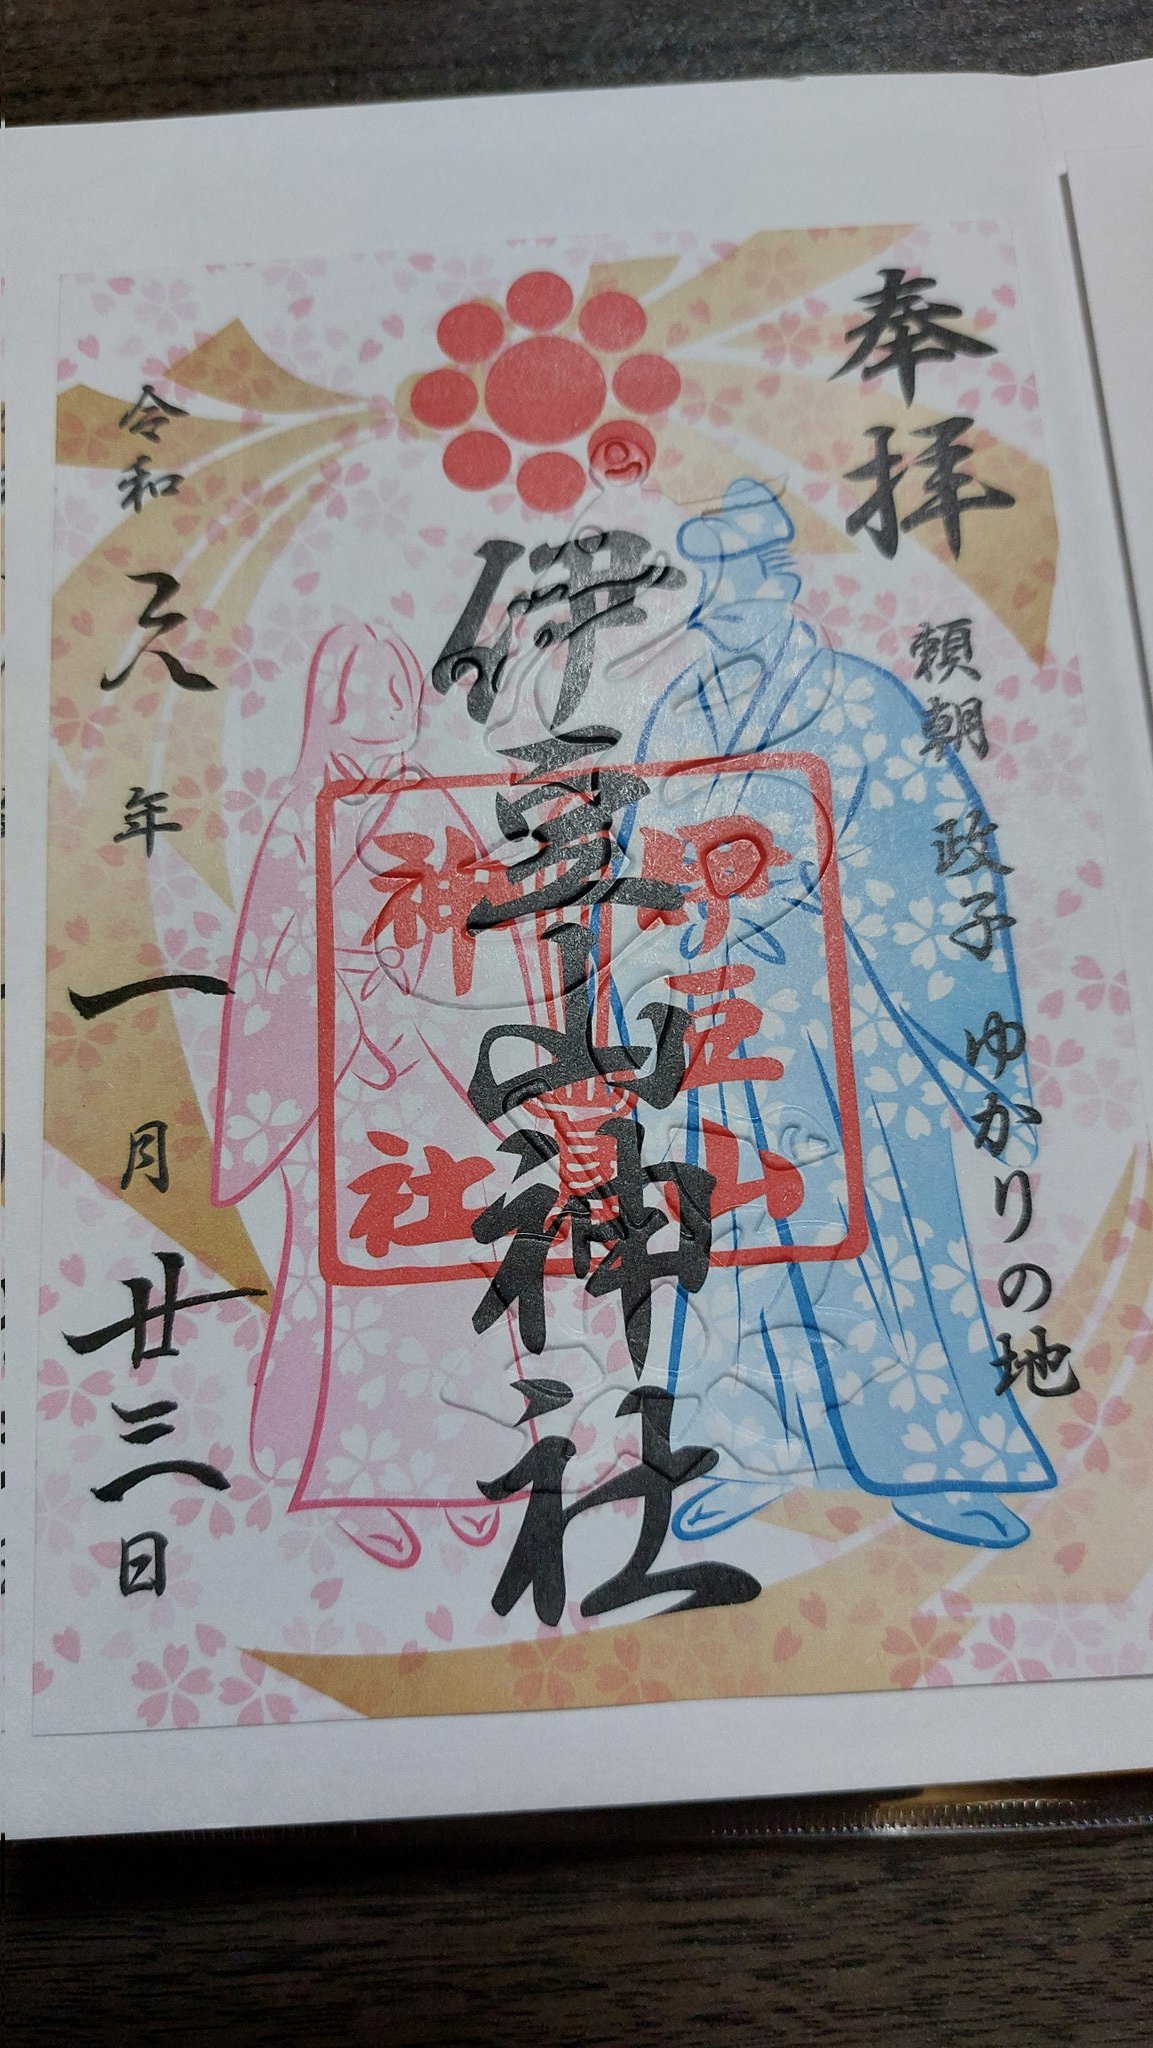 奉拝
頼朝 政子 ゆかりの地
伊豆山神社
伊豆山
神社
令和 年 一月 廿三日